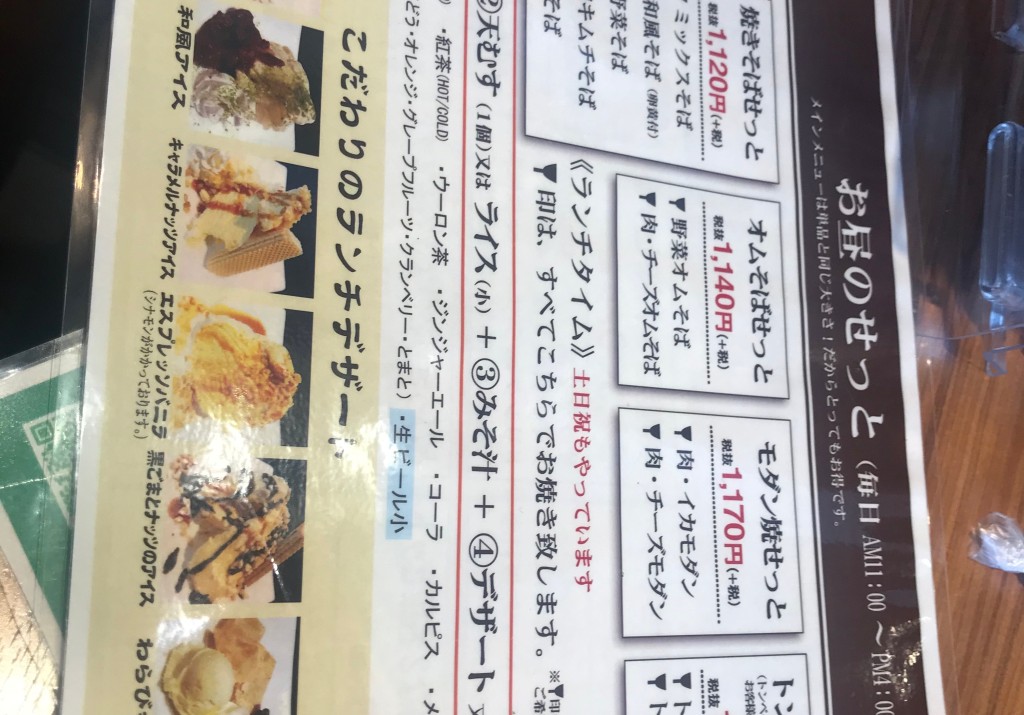 お昼のせっと (毎日 AM11:00 ～ PM4:00
メインメニューは単品と同じ大きさ！だからとってもお得です。
焼きそばせっと
税抜1,120円(+税)
ミックスそば
和風そば (卵黄付)
野菜そば
キムチそば
そば
オムそばせっと
税抜1,140円(+税)
▼野菜オムそば
▼肉・チーズオムそば
モダン焼せっと
税抜1,170円(+税)
▼肉・イカモダン
▼肉・チーズモダン
ト
(トンペ
お客様
税抜
▼ト
▼ト
《ランチタイム》土日祝もやっています
▼印は、すべてこちらでお焼き致します。
※▼印
ご希
②天むす (1個)又は ライス(小) + ③みそ汁 + ④デザート
・紅茶(HOT/COLD) ・ウーロン茶 ・ジンジャーエール ・コーラ ・カルピス ・メ
どう・オレンジ・グレープフルーツ・クランベリー・とまと) ・生ビール小
こだわりのランチデザート
和風アイス
キャラメルナッツアイス
エスプレッソバニラ
(シナモンがかかっております。)
黒ごまとナッツのアイス
わらび